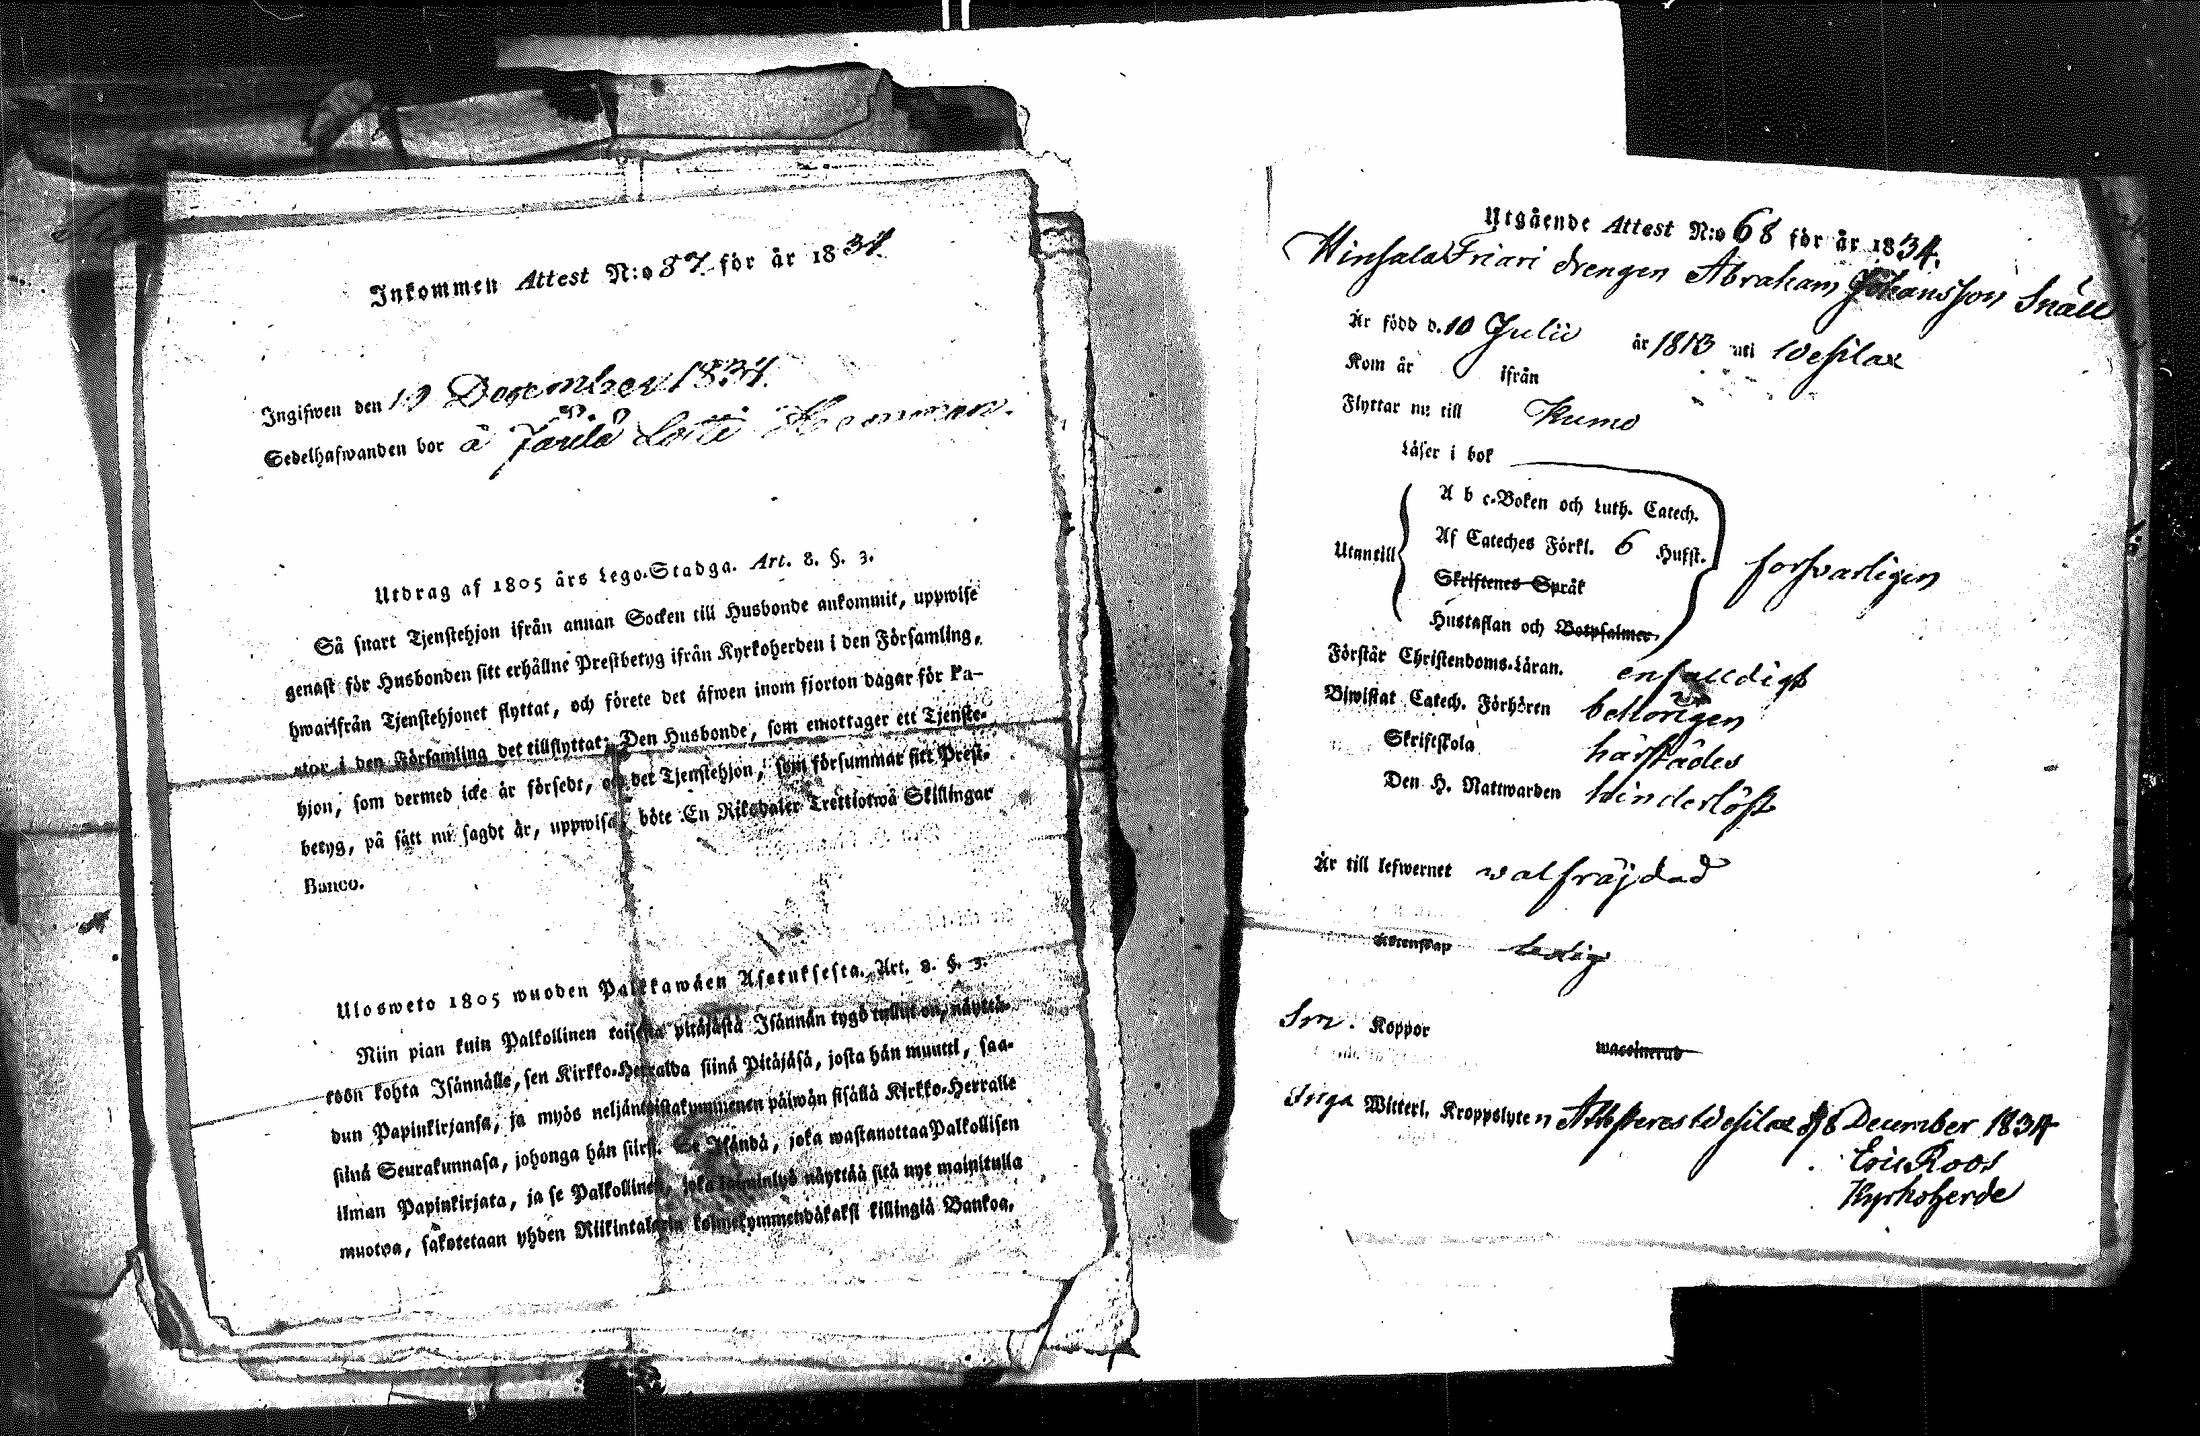 Inkommen Attest N:o 87 för år 1834.
Ingifwen den 19 December 1834.
Sedelhafwanden bor å
Utdrag af 1805 års Lego-Stadga. Art. 8. §. 3.
Så snart Tjenstehjon ifrån annan Socken till Husbonde ankommit, uppwise
genast för Husbonden sitt erhållne Prestbetyg ifrån Kyrkoherden i den Församling,
hwarifrån Tjenstehjonet flyttat, och förete det äfwen inom fjorton dagar för Pa-
stor i den Församling det tillflyttat; Den Husbonde, som emottager ett Tjenste-
hjon, som dermed icke är försedt, och det Tjenstehjon, som försummar sitt Prest-
betyg, på sätt nu sagdt är, uppwisa, böte En Riksdaler Trettiotwå Skillingar
Banco.
Ulosweto 1805 wuoden Palkkawäen Asetuksesta. Art. 8. §. 3.
Niin pian kuin Palkollinen toisesta pitäjästä Isännän tygö tullut on, näyttä-
köön kohta Isännälle, sen Kirkko-Herralda siinä Pitäjäsä, josta hän muutti, saa-
dun Papinkirjansa, ja myös neljäntoistakymmenen päiwän sisällä Kirkko-Herralle
siinä Seurakunnasa, johonga hän siirsi. Se Isändä, joka wastanottaa Palkollisen
ilman Papinkirjata, ja se Palkollinen, joka laiminlyö näyttää sitä nyt mainitulla
muotoa, sakotetaan yhden Riikintalarin kolmekymmendäkaksi killingiä Bankoa.
Utgående Attest N:o 68 för år 1834.
Hinsala Friari drengen Abraham Johansson Snäll
Är född d. 10 Julii år 1813 uti Wesilax
Kom år ifrån
Flyttar nu till Kumo
Läser i bok
A b c-Boken och Luth. Catech.
Utantill Af Cateches Förkl. 6 Hufst. försvarligen
Skriftenes Språk
Hustaflan och Botpsalmer
Förstår Christendoms-Läran. enfaldigt
Biwistat Catech. Förhören behörigen
Skriftskola härstädes
Den H. Nattwarden hinderlöst
Är till lefwernet wälfräjdad
Äktenskap ledig
Koppor
waccinerad
Inga Witterl. Kroppslyten Attesteres Wesilax d. 8 December 1834
Eric Roos
Kyrkoherde